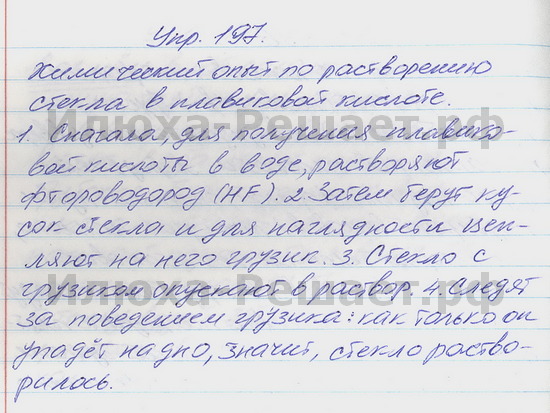 Упр. 197.
Химический опыт по растворению
стекла в плавиковой кислоте.
Илюха-Решает.рф
1. Сначала, для получения плавико-
вой кислоты в воде, растворяют
фтороводород (HF). 2. Затем берут ку-
сок стекла и для наглядности цеп-
ляют на него грузик. 3. Стекло с
грузиком опускают в раствор. 4. Следят
Илюха-Решает.рф
за поведением грузика: как только он
упадёт на дно, значит, стекло раство-
рилось.